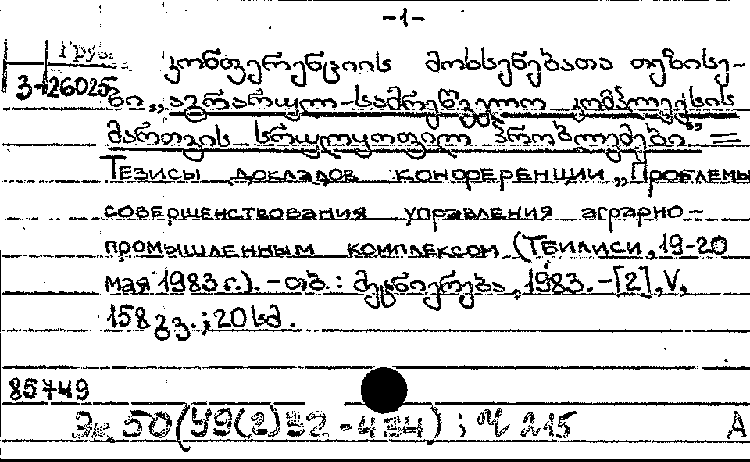 -1-
Груз.
კონფერენციის მოხსენებათა თეზისე-
3-26025
ბი „აგრარულ-სამრეწველო კომპლექსის
მართვის სრულყოფილ პრობლემები" =
Тезисы докладов конференции „Проблемы
совершенствования управления аграрно-
промышленным комплексом (Тбилиси, 19-20
мая 1983 г.). - თბ.: მეცნიერება, 1983. - [2], V,
158 გვ.; 20 სმ.
85749
Эк 50(У9(2)32-434); Ч 215 А